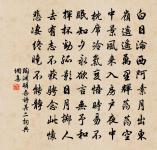 白日淪西阿素月出東
嶺遙遙萬里輝蕩蕩空
中景風來入房戶夜中
枕席冷氣變悟時易不
眠知夕永欲言無予和
揮杯勸孤影日月擲人
去有志不獲騁念此懷
悲悽終曉不能靜
陶淵明雜詩其二